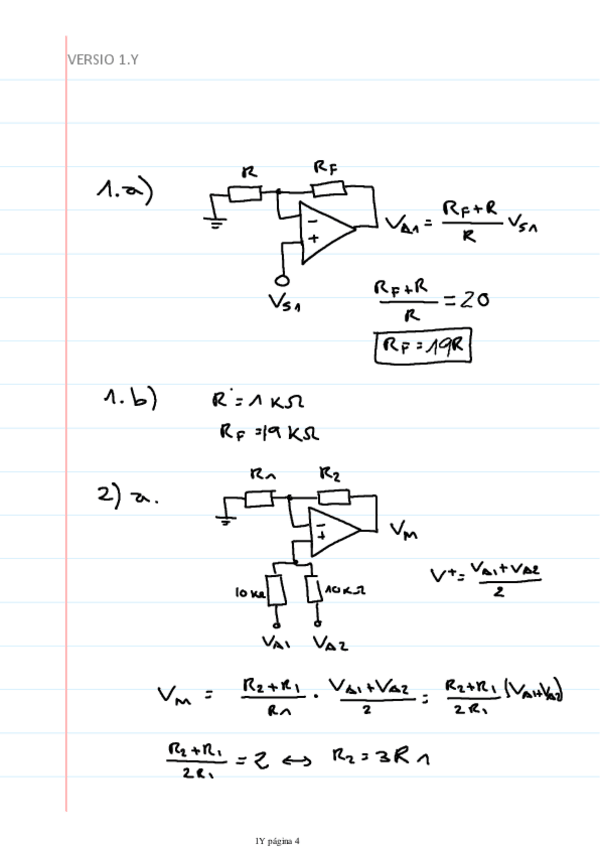 VERSIO 1.Y
1.a)
R
RF
-
+
VS1
VA1 = (RF+R)/R VS1
(RF+R)/R = 20
RF = 19R
1.b) R = 1 KΩ
RF = 19 KΩ
2) a.
R1
R2
-
+
VM
10KΩ
10KΩ
VA1 VA2
V+ = (VA1+VA2)/2
VM = (R2+R1)/R1 · (VA1+VA2)/2 = (R2+R1)/2R1 (VA1+VA2)
(R2+R1)/2R1 = 2 ↔ R2 = 3R1
1Y página 4